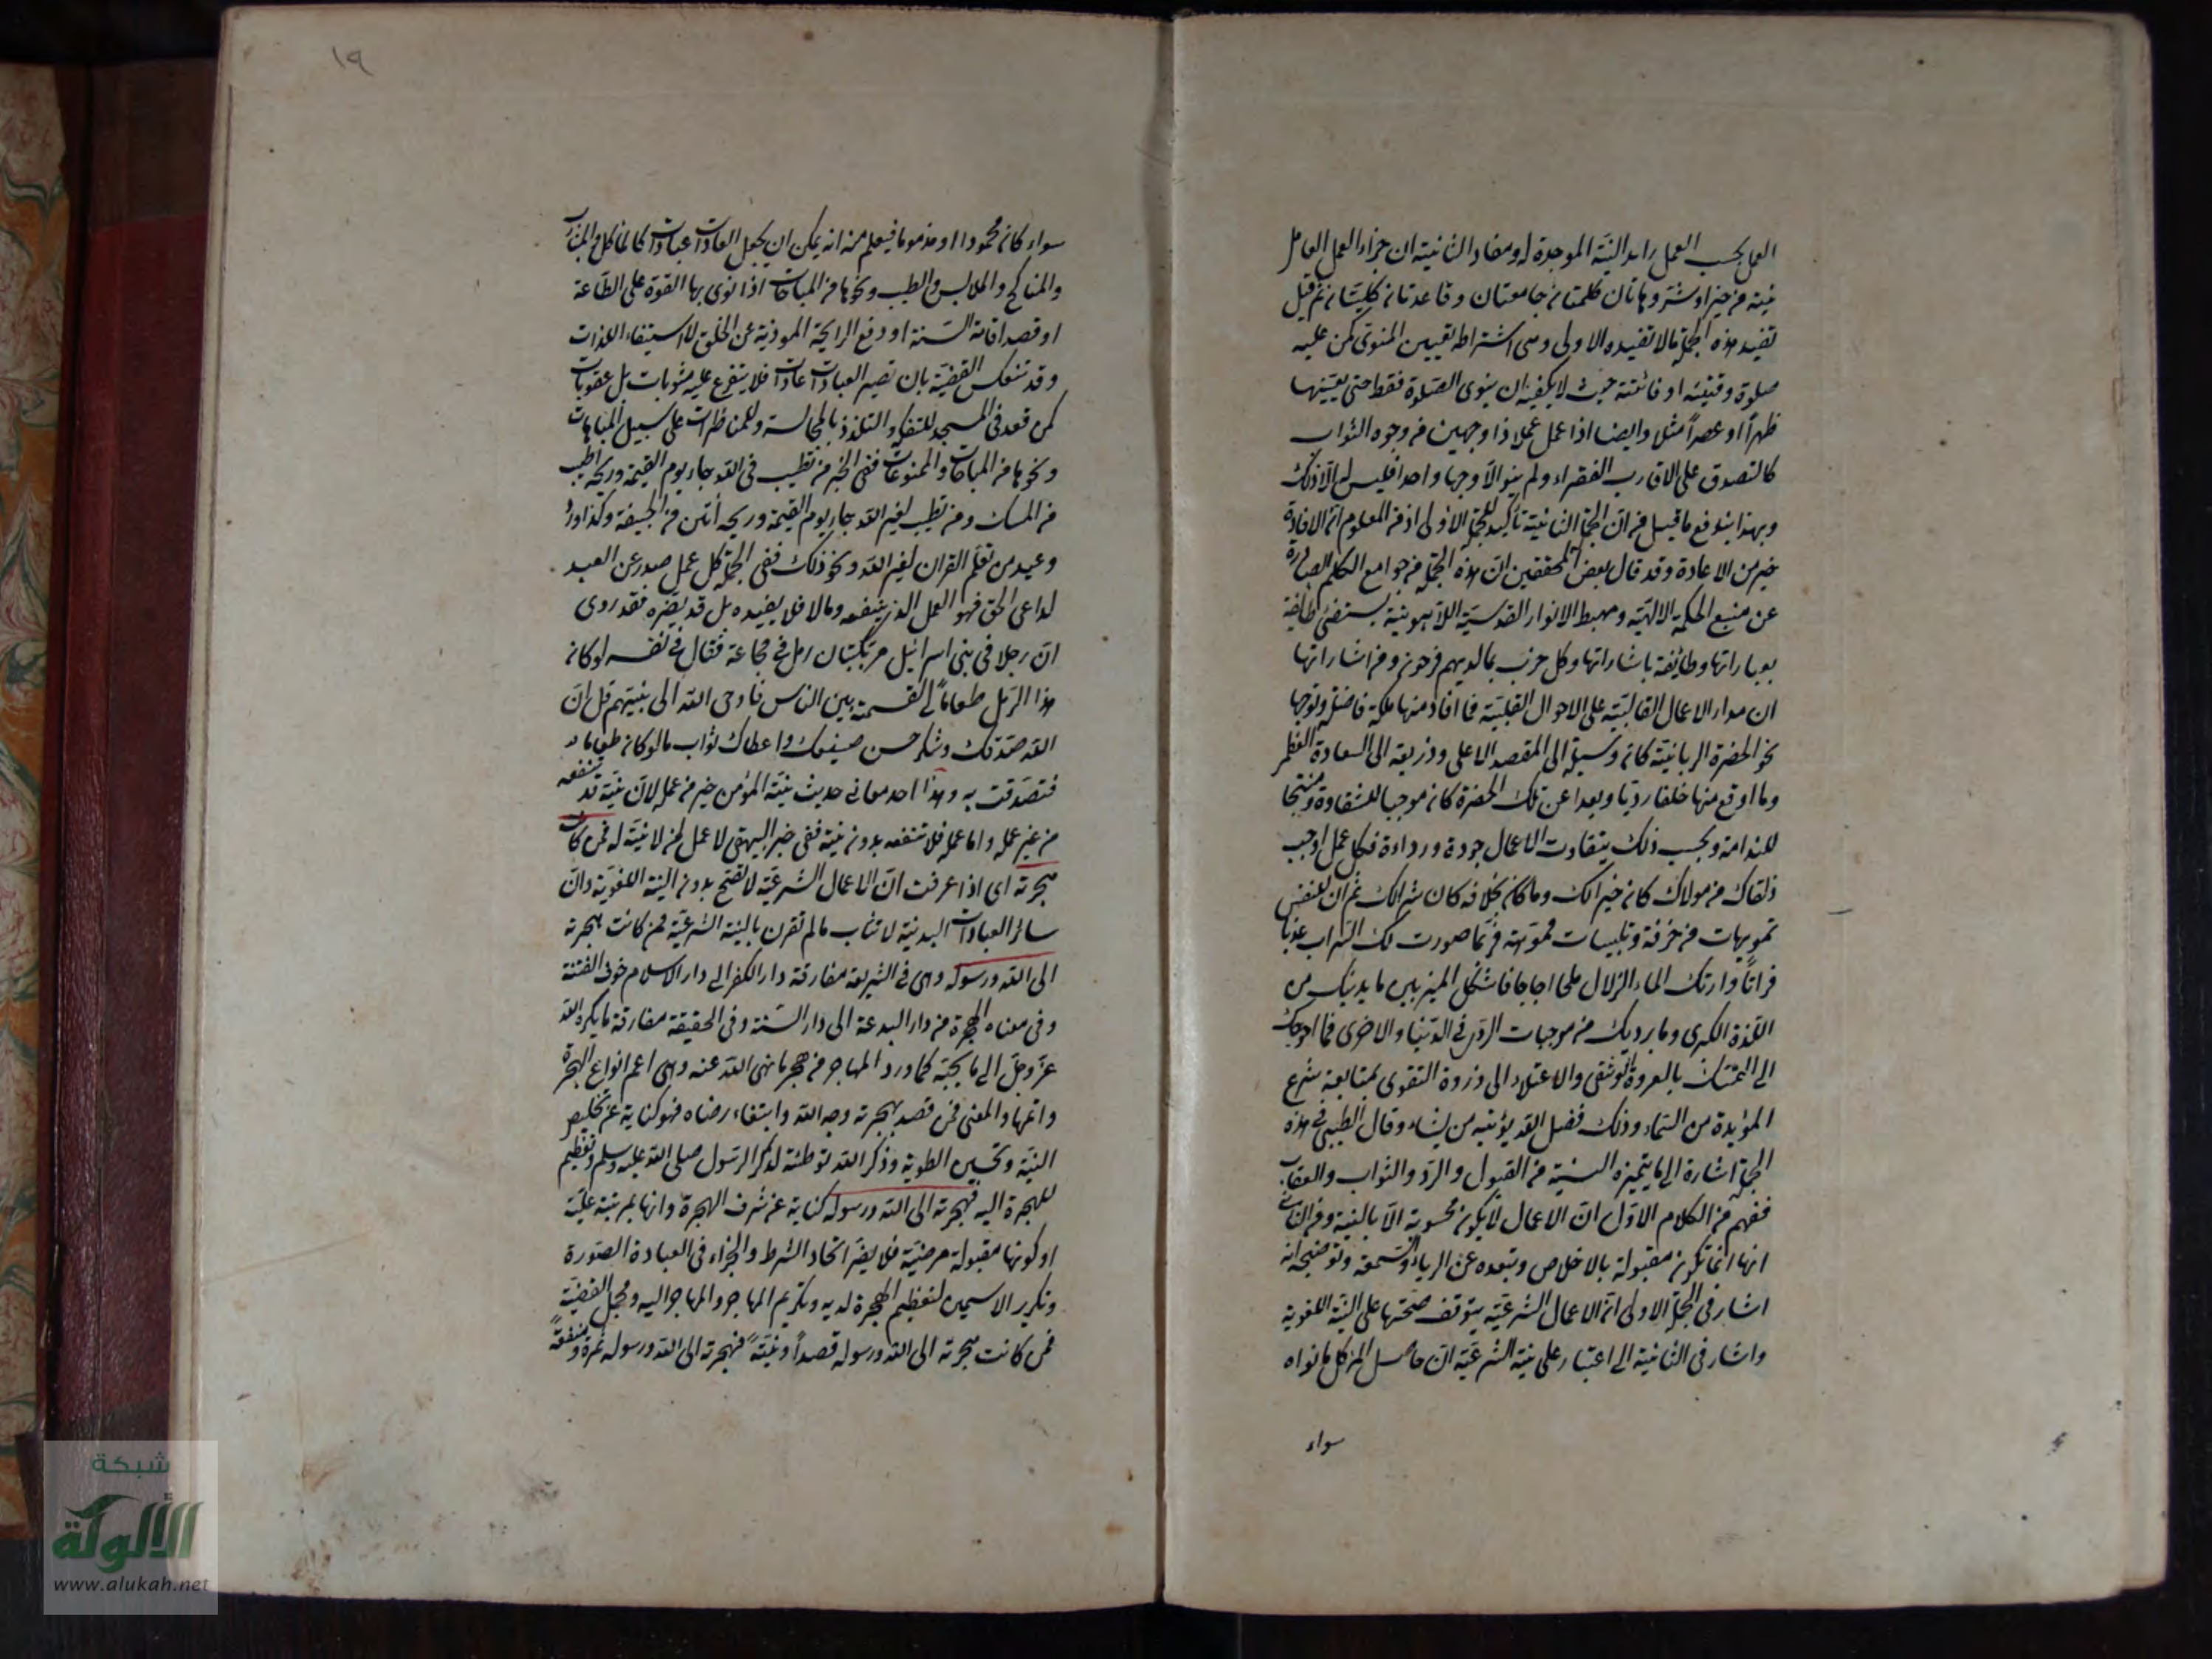 العمل بحسب العمل رابد النية الموجدة له ومفاد الثانية ان جزاء العمل العامل
نيته من خير او شر وهاتان كلمتان جامعتان وقاعدتان كليتان ثم قيل
تفيد هذه الجملة مالا تفيده الاولى وهى اشتراط تعيين المنوى كمن عليه
صلوة وقتية او فائتة حيث لا يكفيه ان ينوى الصلوة فقط حتى يعينها
ظهراً او عصراً مثلا وايضا اذا عمل عملا ذا وجهين من وجوه الثواب
كالتصدق على الاقارب الفقراء ولم ينو الا وجها واحدا فليس له الا ذلك
وبهذا يندفع ما قيل من ان الجملة الثانية تأكيد للجملة الاولى اذ من المعلوم ان الافادة
خير من الاعادة وقد قال بعض المحققين ان هذه الجملة من جوامع الكلم الصادرة
عن منبع الحكمة الالهية ومهبط الانوار القدسية اللاهوتية يستضئ طائفة
بعباراتها وطائفة باشاراتها وكل حزب بما لديهم فرحون ومن اشاراتها
ان مدار الاعمال القالبية على الاحوال القلبية فما افاد منها ملكة فاضلة وتوجها
نحو الحضرة الربانية كان وسيلة الى المقصد الاعلى وذريعة الى السعادة العظمى
وما اوقع منها خلقا رديا وبعدا عن تلك الحضرة كان موجبا للشقاوة ومنتجا
للندامة وبحسب ذلك يتفاوت الاعمال جودة ورداءة فكل عمل اوجب
زلفاك من مولاك كان خيرا لك وما كان بخلافه كان شرا لك ثم ان للنفس
تمويهات مزخرفة وتلبيسات مموهة فربما صورت لك السراب عذبا
فراتاً وارتك الماء الزلال ملحا اجاجا فاشكل الميز بين ما يدنيك من
اللذة الكبرى وما يرديك من موجبات الردى فى الدنيا والاخرى فما احوجك
الى التمسك بالعروة الوثقى والاعتلاء الى ذروة التقوى بمتابعة شرع
المؤيدة من السماء وذلك فضل الله يؤتيه من يشاء وقال الطيبى فى هذه
الجملة اشارة الى ما يتميزه النية من القبول والرد والثواب والعقاب
ففهم من الكلام الاول ان الاعمال لا يكون محسوبة الا بالنية ومن الثانى
انها انما تكون مقبولة بالاخلاص وبتعده عن الرياء والسمعة وتوضيحه انه
اشار فى الجملة الاولى ان الاعمال الشرعية يتوقف صحتها على النية اللغوية
واشار فى الثانية الى اعتبار على نية الشرعية ان حاصل امر كل ما نواه
سواء
١٩
سواء كان محمودا او مذموما فيعلم منه انه يمكن ان يجعل العادات عبادات كالمآكل والمشارب
والمناكح والملابس والطيب ونحوها من المباحات اذا نوى بها القوة على الطاعة
او قصد اقامة السنة او دفع الرايحة الموذية عن الخلق لا استيفاء اللذات
وقد تنعكس القضية بان تصير العبادات عادات فلا يتفرع عليه مثوبات بل عقوبات
كمن قعد فى المسجد للتفكه والتلذذ بالمجالسة والمناظرات على سبيل المباهات
ونحوها من المباحات والممنوعات ففى الخبر من تطيب فى الله جاء يوم القيمة وريحه اطيب
من المسك ومن تطيب لغير الله جاء يوم القيمة وريحه أنتن من الجيفة وكذا ورد
وعيد من تعلم القران لغير الله ونحو ذلك ففى الجملة كل عمل صدر عن العبد
لداعى الحق فهو العمل الذى ينفعه وما لا فلا يفيده بل قد يضره فقد روى
ان رجلا فى بنى اسرائيل مر بكثبان رمل فى مجاعة فقال فى نفسه لو كان
هذا الرمل طعاماً لقسمته بين الناس فاوحى الله الى نبيهم قل ان
الله صدقك وشكر حسن صنيعك واعطاك ثواب ما لو كان طعاما
فتصدقت به وهذا احد معانى حديث نية المؤمن خير من عمله لان نيته قد تنفعه
من غير عمله واما عمله فلا تنفعه بدون نيته ففى خبر البيهقى لا عمل لمن لا نية له فمن كانت
هجرته اى اذا عرفت ان الاعمال الشرعية لا تصح بدون النية اللغوية وان
سائر العبادات البدنية لا تثاب مالم تقرن بالنية الشرعية فمن كانت هجرته
الى الله ورسوله وهى فى الشريعة مفارقة دار الكفر الى دار الاسلام خوف الفتنة
وفى معناه الهجرة من دار البدعة الى دار السنة وفى الحقيقة مفارقة ما يكره الله
عز وجل الى ما يحبه كما ورد المهاجر من هجر ما نهى الله عنه وهى اعم انواع الهجرة
واتمها والمعنى فمن قصد بهجرته وجه الله وابتغاء رضاه فهو كناية عن تخليص
النية وتحسين الطوية وذكر الله توطئة لذكر الرسول صلى الله عليه وسلم وتعظيم
للهجرة اليه فهجرته الى الله ورسوله كناية عن شرف الهجرة وانها بمرتبة علية
او كونها مقبولة مرضية فلا يضر اتحاد الشرط والجزاء فى العبادة الصورة
وتكرير الاسمين لتعظيم الهجرة لديه وتكريم المهاجر والمهاجر اليه ومجمل القضية
فمن كانت هجرته الى الله ورسوله قصداً ونيةً فهجرته الى الله ورسوله ثمرة ومنفعةً
شبكة
الألوكة
www.alukah.net